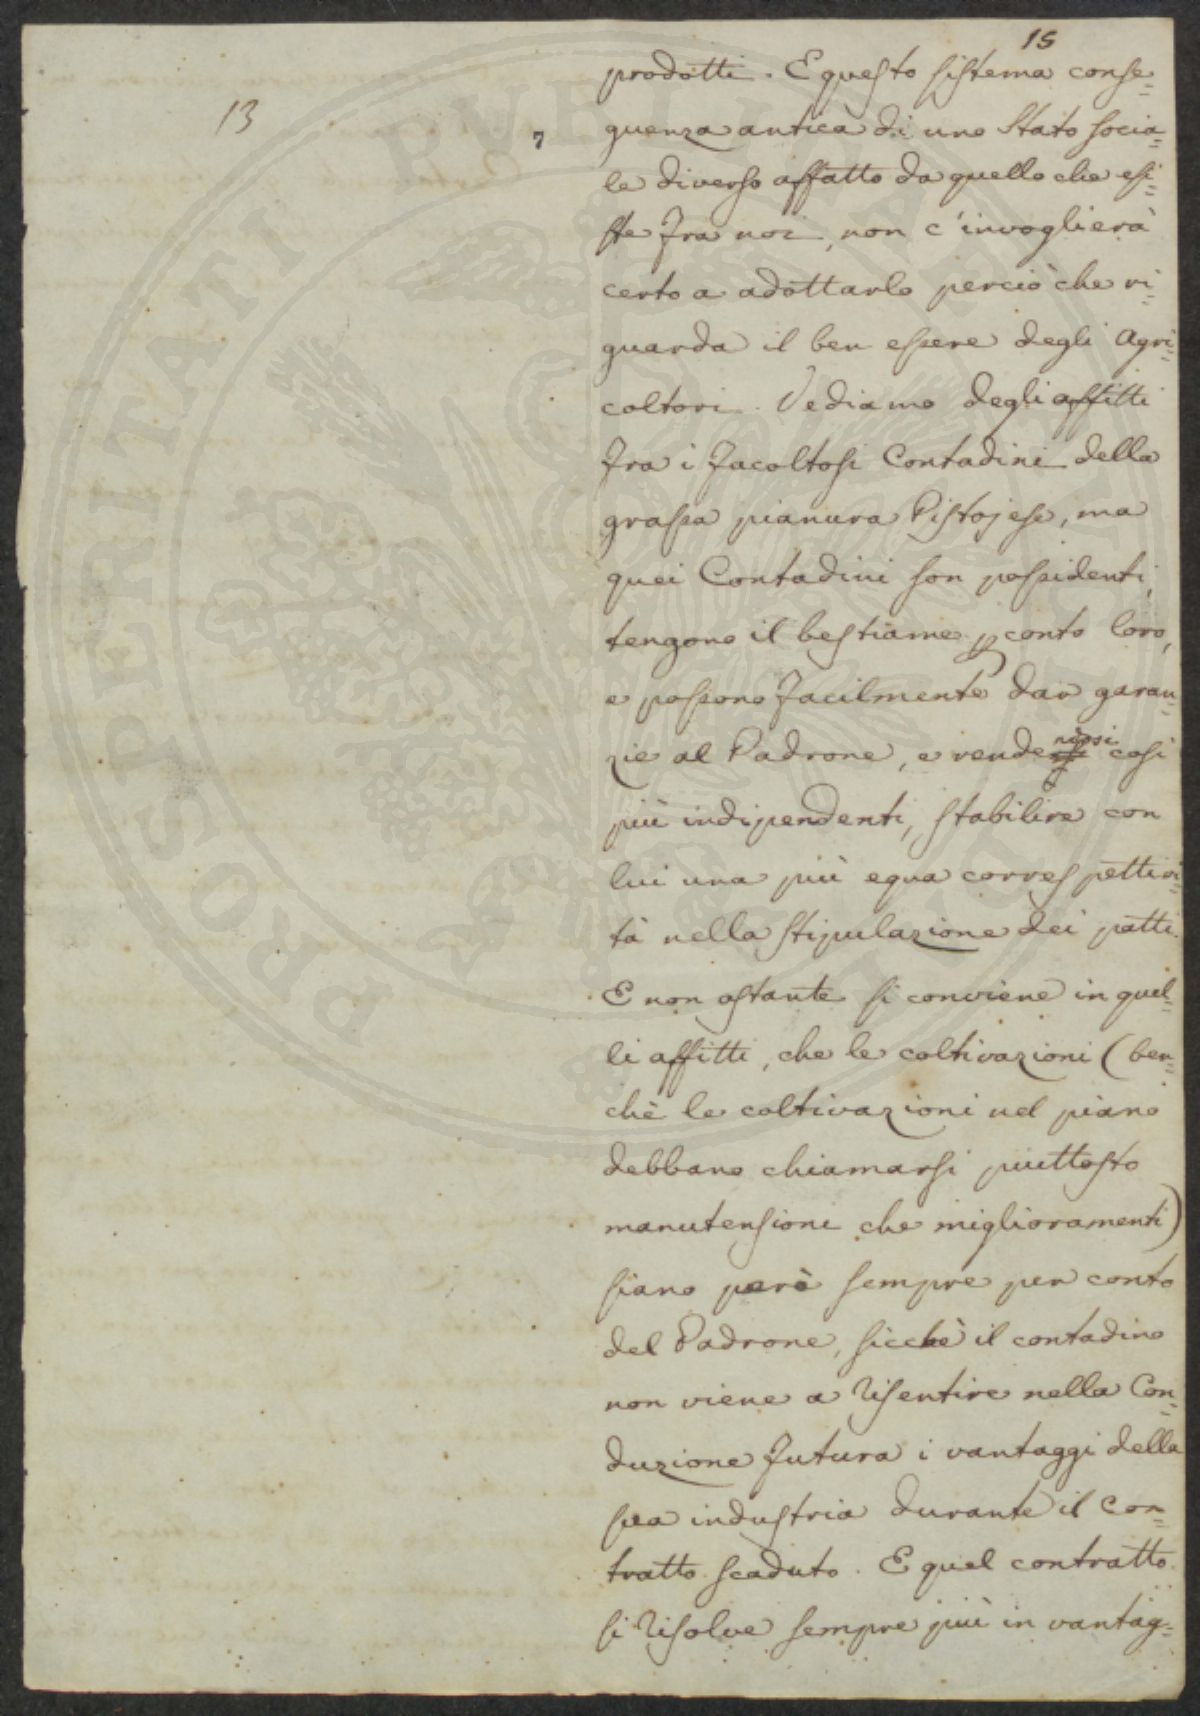 15
13
7
prodotti. E questo sistema conse=
guenza antica di uno Stato socia=
le diverso affatto da quello che esi=
ste fra noi, non c'invoglierà
certo a adottarlo perciò che ri=
guarda il ben essere degli Agri=
coltori. Vediamo degli affitti
fra i facoltosi Contadini della
grassa pianura Pistojese, ma
quei Contadini son possidenti,
tengono il bestiame p conto loro,
e possono facilmente dar garan=
zie al Padrone, e rende cosi
più indipendenti, stabilire con
lui una più equa correspettivi=
tà nella stipulazione dei patti.
E non ostante si conviene in quel=
li affitti, che le coltivazioni (ben=
chè le coltivazioni nel piano
debbano chiamarsi piuttosto
manutensioni che miglioramenti)
siano però sempre per conto
del Padrone, sicchè il contadino
non viene a risentire nella Con=
duzione futura i vantaggi della
sua industria durante il Con=
tratto scaduto. E quel contratto
si risolve sempre più in vantag=
PROSPERITATI PVBLICAE